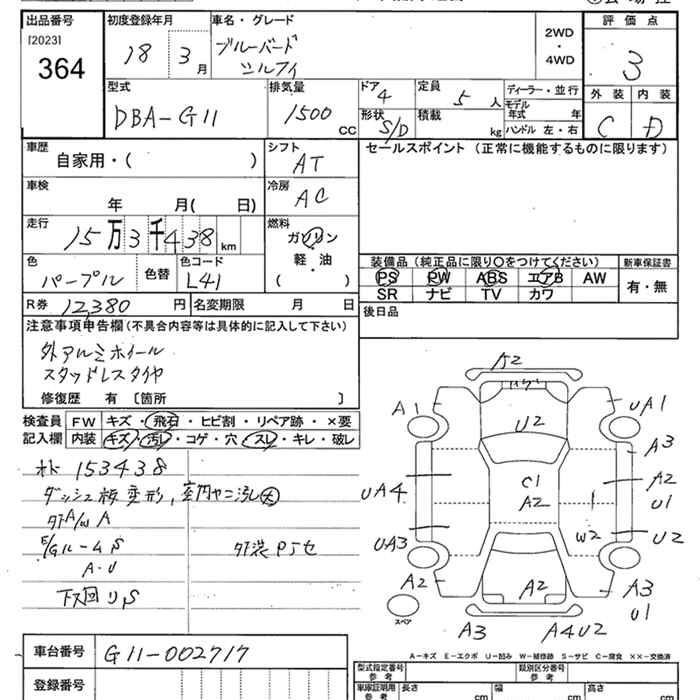 出品番号 初度登録年月 車名・グレード 評価点
[2023]
364
18 3 月 ブルーバード
シルフィ
2WD
・
4WD
3
型式 排気量 ドア 定員 ディーラー・並行 外装 内装
DBA-G11 1500 CC 4 5 人 モデル年式 年 C D
形状 積載 kg ハンドル 左・右
S/D
車歴 シフト セールスポイント (正常に機能するものに限ります)
自家用・( ) AT
車検 冷房
年 月( 日) AC
走行 燃料
15 万 3 千 4 3 8 km ガソリン
軽・油
・
( )
色 色替 色コード
パープル L41
装備品 (純正品に限り○をつけてください) 新車保証書
PS PW ABS エアB AW 有・無
SR ナビ TV カワ
R券 12,380 円 名変期限 月 日 後日品
注意事項申告欄 (不具合内容等は具体的に記入して下さい)
外アルミホイール
スタッドレスタイヤ
修復歴 有 〔箇所 〕
検査員 FW キズ・飛石・ヒビ割・リペア跡・×要
記入欄 内装 キズ・汚レ・コゲ・穴・スレ・キレ・破レ
メーター 153438
ダッシュ板変形, 室内ヤニ汚レ大
A/W A
E/Gルーム S
A・U
下回り S
A2
A1 UA1
U2
A3
C1 A2
UA4 A2 U1
W2 U2
UA3
A2 A2 A3
U1
スペア
A3 A4U2
A-キズ E-エクボ U-凹み W-補修跡 S-サビ C-腐食 ××-交換済
車台番号 G11-002717
型式指定番号 参考 類別区分番号 参考
登録番号
車庫証明用 参考 長さ cm 幅 cm 高さ cm